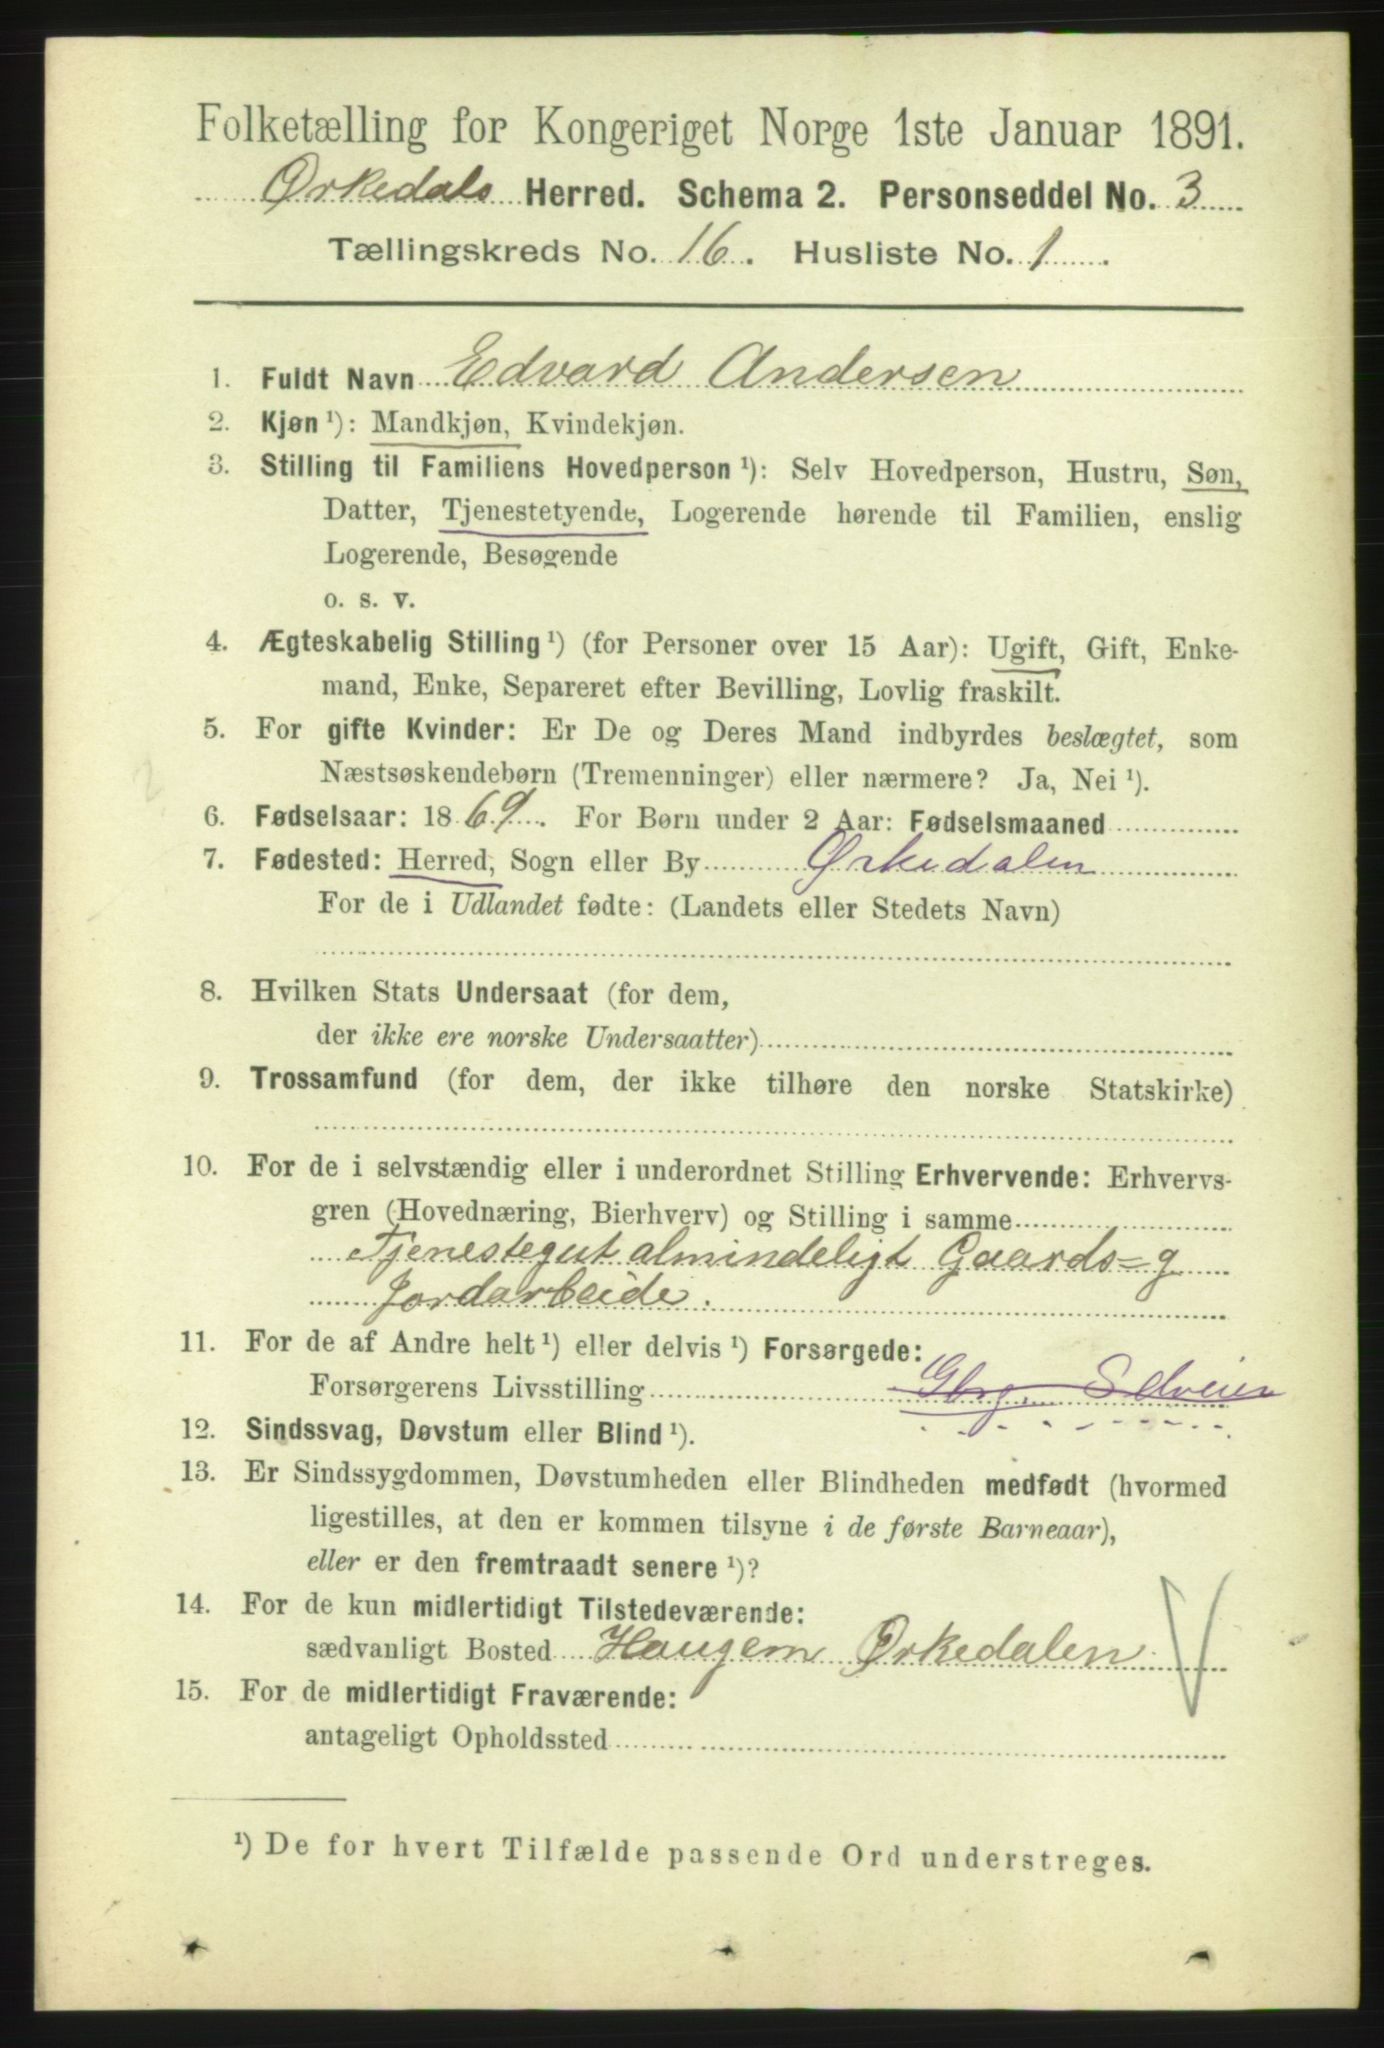 Folketælling for Kongeriget Norge 1ste Januar 1891.
Ørkedals Herred. Schema 2. Personseddel No. 3
Tællingskreds No. 16. Husliste No. 1
1. Fuldt Navn Edvard Andersen
2. Kjøn ¹): Mandkjøn, Kvindekjøn.
3. Stilling til Familiens Hovedperson ¹): Selv Hovedperson, Hustru, Søn,
Datter, Tjenestetyende, Logerende hørende til Familien, enslig
Logerende, Besøgende
o. s. v.
4. Ægteskabelig Stilling ¹) (for Personer over 15 Aar): Ugift, Gift, Enke-
mand, Enke, Separeret efter Bevilling, Lovlig fraskilt.
5. For gifte Kvinder: Er De og Deres Mand indbyrdes beslægtet, som
Næstsøskendebørn (Tremenninger) eller nærmere? Ja, Nei ¹).
6. Fødselsaar: 1869. For Børn under 2 Aar: Fødselsmaaned
7. Fødested: Herred, Sogn eller By Ørkedalen
For de i Udlandet fødte: (Landets eller Stedets Navn)
8. Hvilken Stats Undersaat (for dem,
der ikke ere norske Undersaatter)
9. Trossamfund (for dem, der ikke tilhøre den norske Statskirke)
10. For de i selvstændig eller i underordnet Stilling Erhvervende: Erhvervs-
gren (Hovednæring, Bierhverv) og Stilling i samme
Tjenestegut almindeligt Gaards= g
Jordarbeide.
11. For de af Andre helt ¹) eller delvis ¹) Forsørgede:
Forsørgerens Livsstilling Gbrg. Selveier
12. Sindssvag, Døvstum eller Blind ¹).
13. Er Sindssygdommen, Døvstumheden eller Blindheden medfødt (hvormed
ligestilles, at den er kommen tilsyne i de første Barneaar),
eller er den fremtraadt senere ¹)?
14. For de kun midlertidigt Tilstedeværende:
sædvanligt Bosted Haugem Ørkedalen
15. For de midlertidigt Fraværende:
antageligt Opholdssted
¹) De for hvert Tilfælde passende Ord understreges.